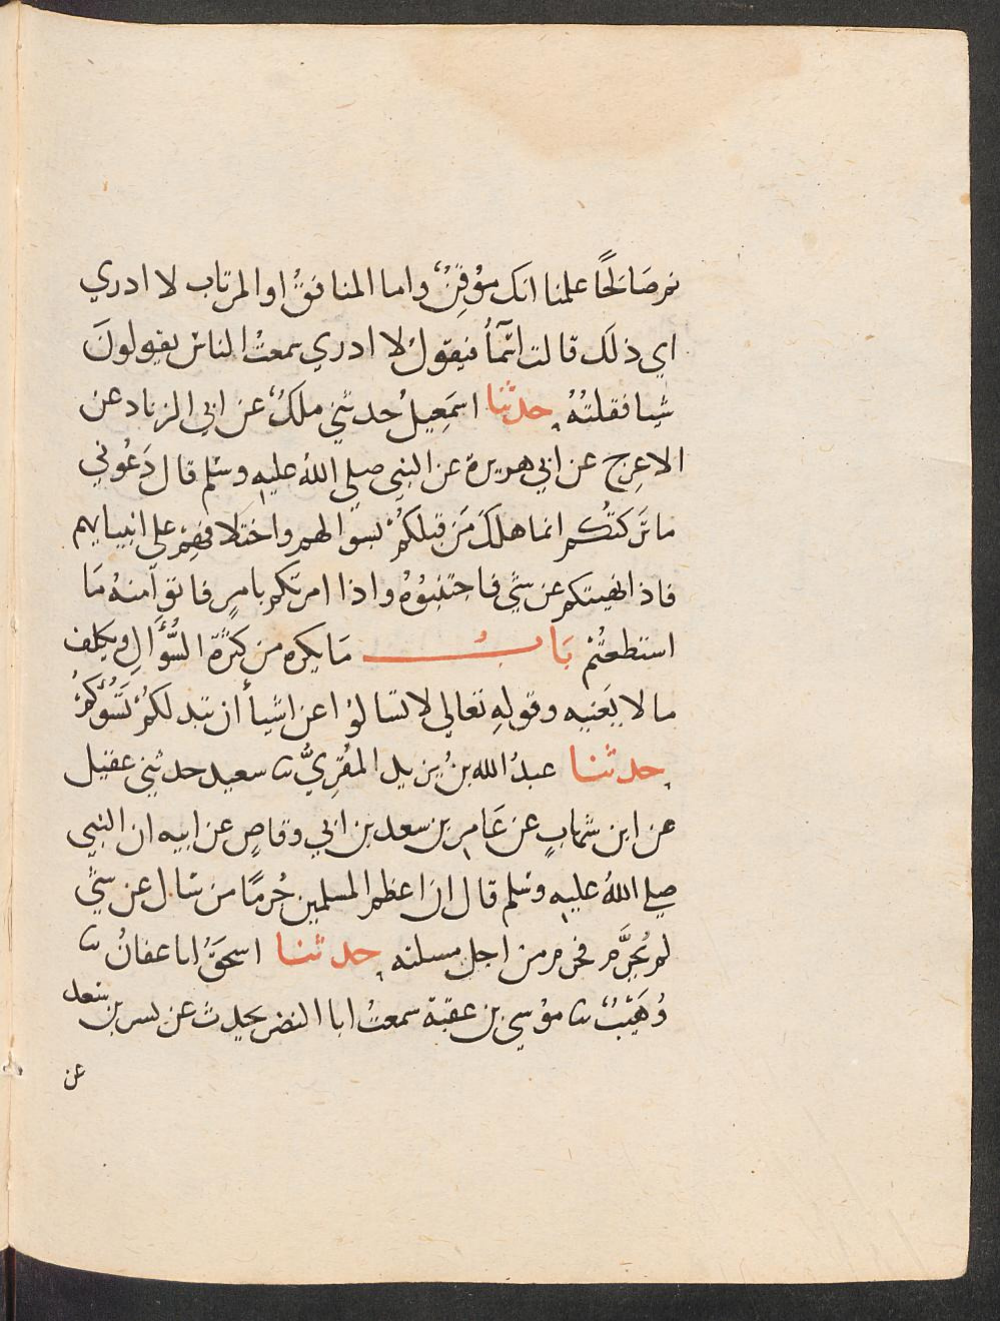 نم صَالحًا علمنا انك مؤقِنٌ واما المنافقُ او المرتاب لا ادري
اي ذلَك قالت اسمآُ فيقولُ لا ادري سمعتُ الناسَ يقولونَ
شيا فقلتُهُ حدثنا اسمَعِيلُ حدثني ملكٌ عن ابي الزناد عن
الاعرج عن ابي هريرة عن النبي صلي اللهُ عليه وسلم قال دَعُوني
ما تَركتُكم انما هلكَ مَن قبلكُمْ بسوالهم واختلافهِمْ علي انبيايهم
فاذا نهيتكم عن شي فاجتنبُوهُ واذا امرتكم بامرٍ فاتو امنهُ مَا
استطعتُم بَابُ مَا يكره من كثرَة السُّؤَالِ ويكلف
ما لا يَعنيه وقولِهِ تعالي لا تسالوا عن اشيأ ان تبد لكُمْ تسُؤكُمْ
حدثنا عبدُ الله بنُ يزيد المقُرِيُّ نا سعيد حدثني عقيل
عن ابن شهابٍ عن عَامر بن سعد بن ابي وقاصٍ عن ابيه ان النبي
صلي اللهُ عليه وسلم قال انَ اعظم المسلمين جُرمًا من سَال عن شي
لم يُحرَّم فحرم من اجل مسلته حدثنا اسحقُ انا عفانُ نا
وُهَيْبٌ نا مؤسي بن عقبة سمعتُ ابا النضر يحدث عن بسر بن سعد
عن